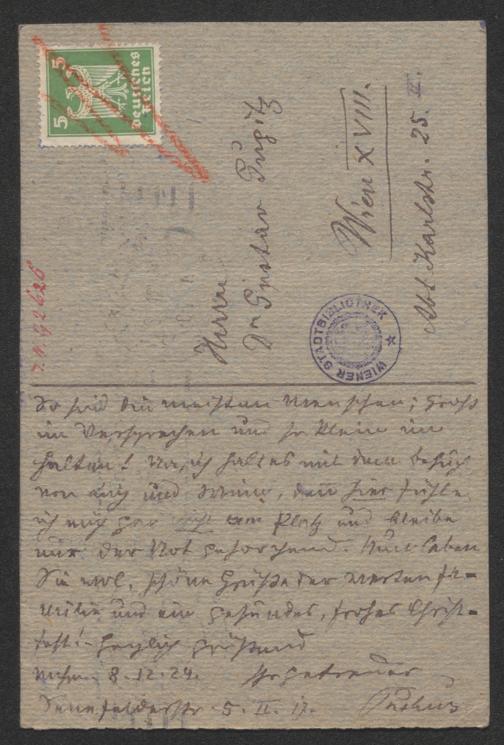 5
5
Deutsches
Reich
Herrn
Dr Gustav Gugitz
Wien XVIII.
Abt Karlstr. 25. II.
WIENER STADTBIBLIOTHEK
So sind die meisten Menschen; groß
im Versprechen und so klein im
Halten! ich halte mit dem
von und Wien, denn hier fühle
ich mich gar nicht am Platz und bleibe
nur der Not gehorchend. Nun leben
Sie wol, schöne Grüße der werten Fa-
milie und ein gesundes, frohes Christ-
fest! Herzlich grüßend
Mchn. 8.12.24. Ihr getreuer
Sennefelderstr. 5. II.